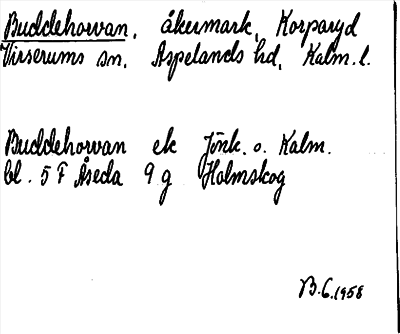 Buddehorvan, åkermark, Korparyd
Virserums sn. Aspelands hd, Kalm. l.
Buddehorvan ek Jönk. o. Kalm.
bl. 5 F Åseda 9 g Holmskog
B.G. 1958